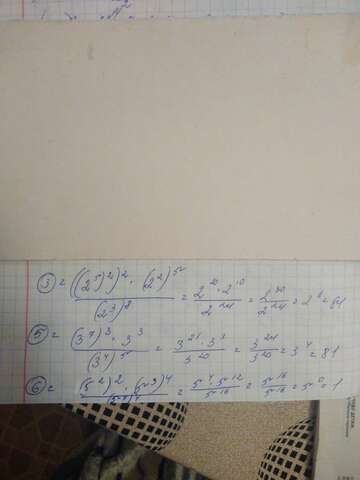 ③ = ((2⁵)²)² · (2²)⁵ / (2³)⁸ = 2²⁰ · 2¹⁰ / 2²⁴ = 2³⁰ / 2²⁴ = 2⁶ = 64
⑤ = (3⁷)³ · 3³ / (3⁴)⁵ = 3²¹ · 3³ / 3²⁰ = 3²⁴ / 3²⁰ = 3⁴ = 81
⑥ = (5²)² · (5³)⁴ / = 5⁴ · 5¹² / 5¹⁶ = 5¹⁶ / 5¹⁶ = 5⁰ = 1